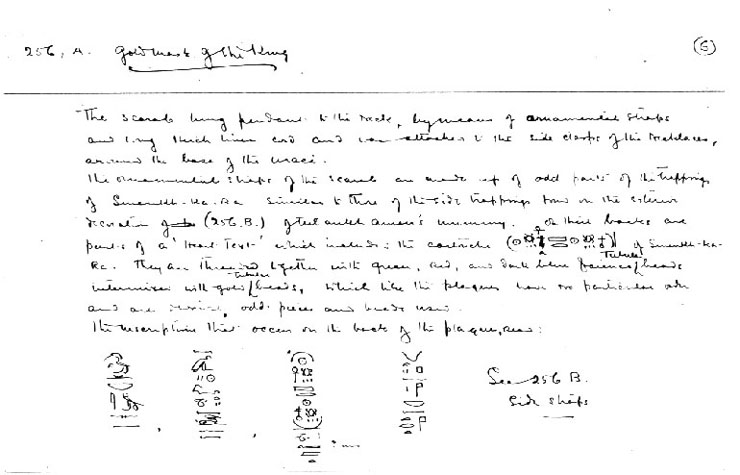 256, A. Gold Mask of the King
(5)
The scarab hung pendant to the neck, by means of ornamental straps
and long thick linen cord and was attached to the side clasps of the necklaces,
around the base of the mask.
The ornamental straps of the scarab are made up of odd parts of the trappings
of Smenkh-Ka-Ra similar to those of the side trappings found on the extern
decoration of (256.B.) of Tut.ankh.Amen's mummy. On their backs are
parts of a 'Text' which includes the cartouche of Smenkh-Ka-
Ra. They are threaded together with green, red, and dark blue tubular faience beads
intermixed with gold tubular beads, which like the plaques have no particular order
and are odd pieces and beads used.
The inscriptions that occur on the back of the plaques, read:
See 256 B.
Side straps